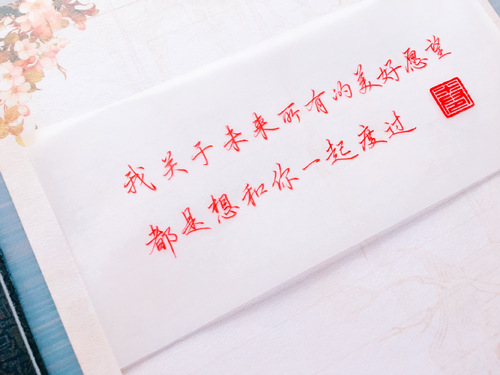 我关于未来所有的美好愿望
都是想和你一起度过